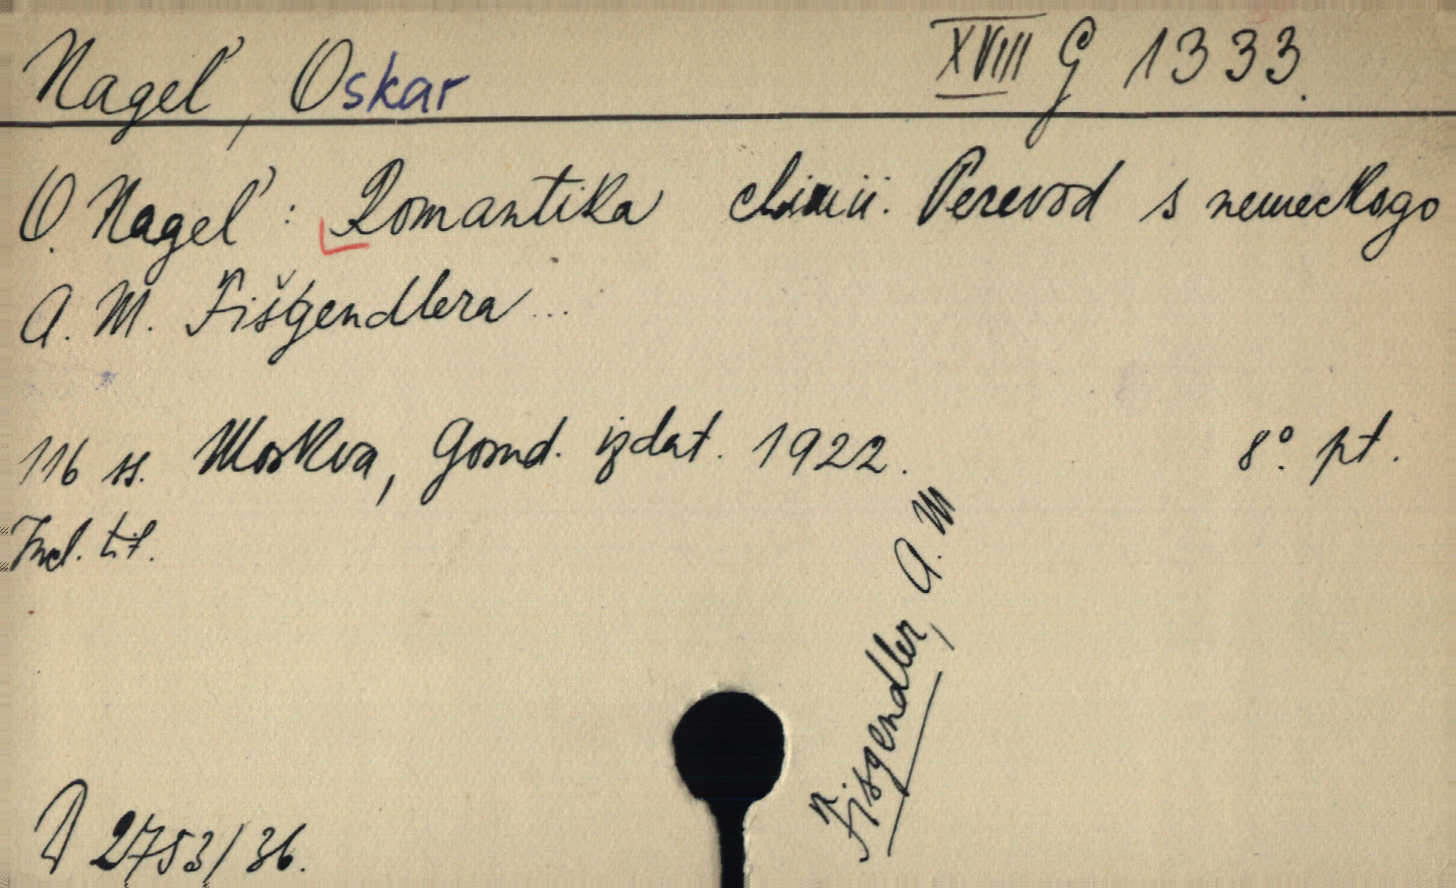 Nagel', Oskar
XVIII G 1333.
O. Nagel': Romantika chimii. Perevod s nemeckogo
A. M. Fišgendlera ...
116 ss. Moskva, Gosud. izdat. 1922. 8°. pt.
Incl. tit.
Fišgendler, A. M
D 2753/36.